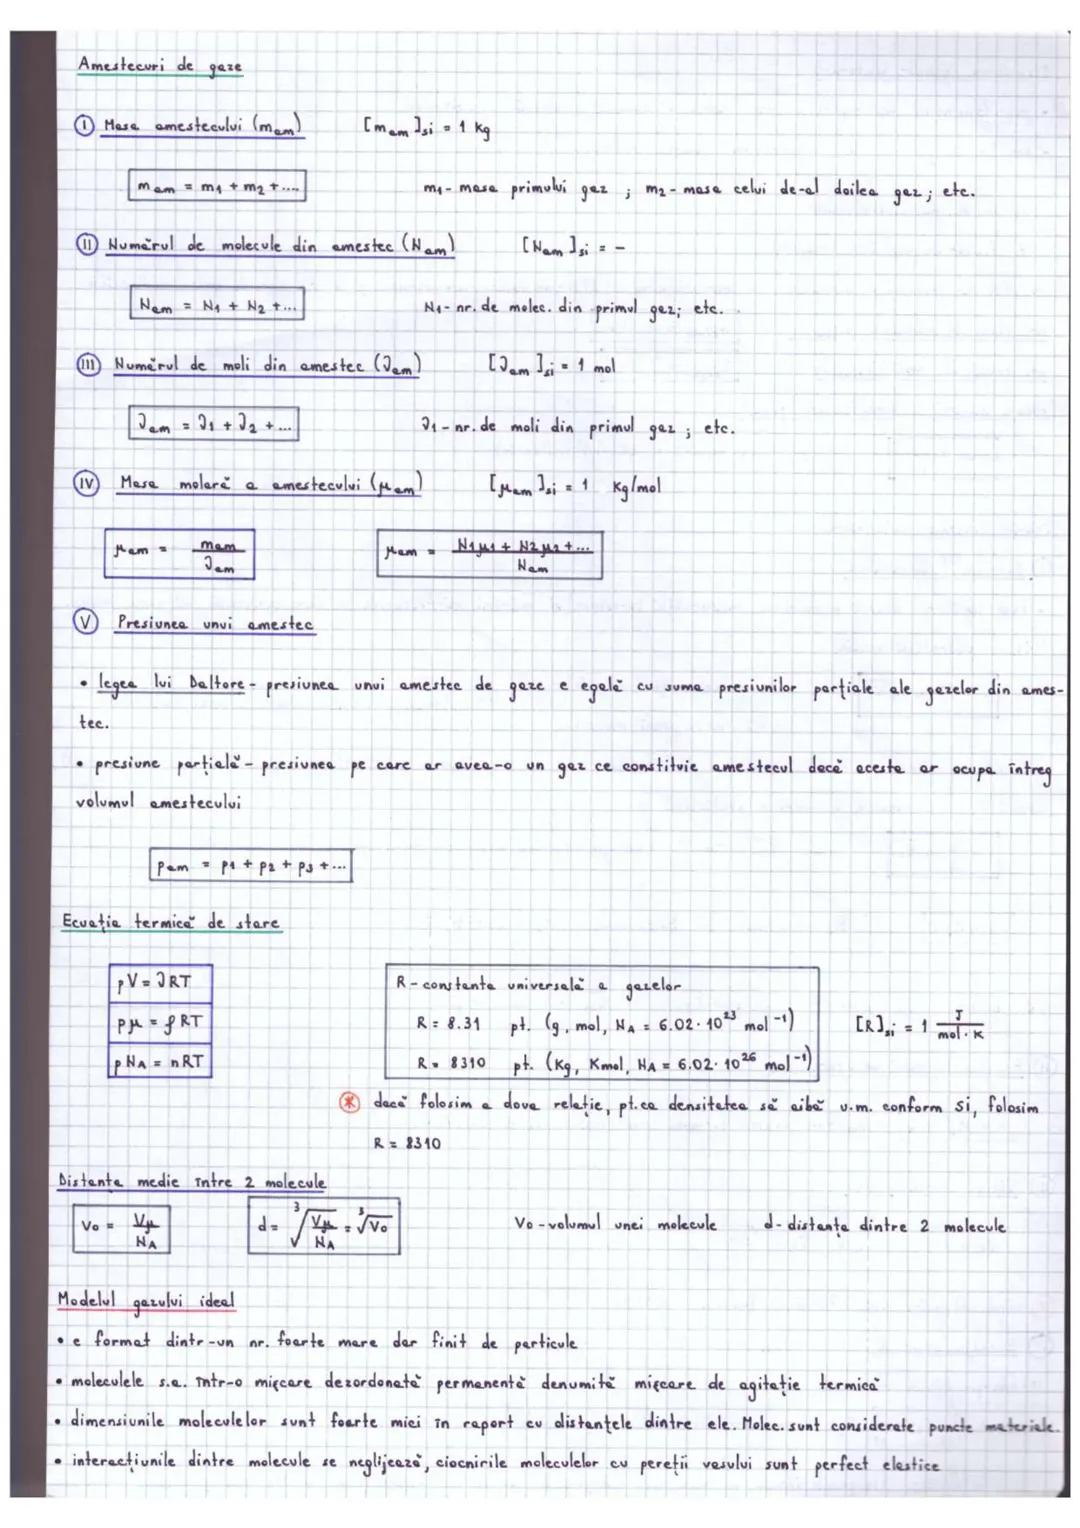 Amestecuri de gaze
I Masa amestecului (mam) [mam]si = 1 Kg
mam = m1 + m2 + .... m1 - masa primului gaz ; m2 - masa celui de-al doilea gaz; etc.
II Numărul de molecule din amestec (Nam) [Nam]si = -
Nam = N1 + N2 + ... N1 - nr. de molec. din primul gaz; etc.
III Numărul de moli din amestec (νam) [νam]si = 1 mol
νam = ν1 + ν2 + ... ν1 - nr. de moli din primul gaz ; etc.
IV Masa molară a amestecului (μam) [μam]si = 1 Kg/mol
μam = mam / νam μam = N1μ1 + N2μ2 + ... / Nam
V Presiunea unui amestec
• legea lui Daltore - presiunea unui amestec de gaze e egală cu suma presiunilor parțiale ale gazelor din ames-
tec.
• presiune parțială - presiunea pe care ar avea-o un gaz ce constituie amestecul dacă acesta ar ocupa întreg
volumul amestecului
pam = p1 + p2 + p3 + ...
Ecuația termică de stare
pV = νRT R - constanta universală a gazelor
pμ = ρRT R = 8.31 pt. (g, mol, NA = 6.02 · 10²³ mol⁻¹) [R]si = 1 J / mol · K
pNA = nRT R = 8310 pt. (Kg, Kmol, NA = 6.02 · 10²⁶ mol⁻¹)
* dacă folosim a doua relație, pt. ca densitatea să aibă u.m. conform Si, folosim
R = 8310
Distanța medie între 2 molecule
V0 = Vμ / NA d = ∛(Vμ / NA) = ∛V0 V0 - volumul unei molecule d - distanța dintre 2 molecule
Modelul gazului ideal
• e format dintr-un nr. foarte mare dar finit de particule
• moleculele s.a. într-o mișcare dezordonată permanentă denumită mișcare de agitație termică
• dimensiunile moleculelor sunt foarte mici în raport cu distanțele dintre ele. Molec. sunt considerate puncte materiale.
• interacțiunile dintre molecule se neglijează, ciocnirile moleculelor cu pereții vasului sunt perfect elastice